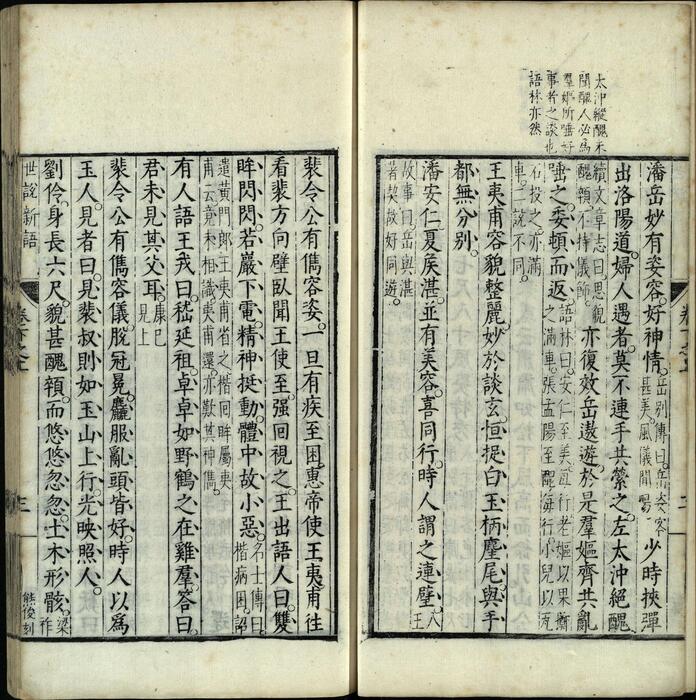 太沖縱醜不
聞醜人必為
羣嫗所唾好
事者之談也
語林亦然
潘岳妙有姿容好神情岳別傳曰岳姿容甚美風儀閒暢少時挾彈
出洛陽道婦人遇者莫不連手共縈之左太沖絕醜
續文章志曰思貌醜顇不持儀飾亦復效岳遨遊於是羣嫗齊共亂
唾之委頓而返語林曰安仁至美每行老嫗以果擲之滿車張孟陽至醜每行小兒以瓦
石投之亦滿車二說不同
王夷甫容貌整麗妙於談玄恒捉白玉柄麈尾與手
都無分別
潘安仁夏侯湛並有美容喜同行時人謂之連璧八王
故事曰岳與湛著契故好同遊
裴令公有儁容姿一旦有疾至困惠帝使王夷甫往
看裴方向壁臥聞王使至强回視之王出語人曰雙
眸閃閃若巖下電精神挺動體中故小惡名士傳曰楷病困詔
遣黃門郎王夷甫省之楷回眸屬夷甫云竟未相識夷甫還亦歎其神儁
有人語王戎曰嵇延祖卓卓如野鶴之在雞羣荅曰
君未見其父耳康已見上
裴令公有儁容儀脫冠冕麤服亂頭皆好時人以為
玉人見者曰見裴叔則如玉山上行光映照人
劉伶身長六尺貌甚醜顇而悠悠忽忽土木形骸梁祚
世說新語
卷下之上
熊俊刻